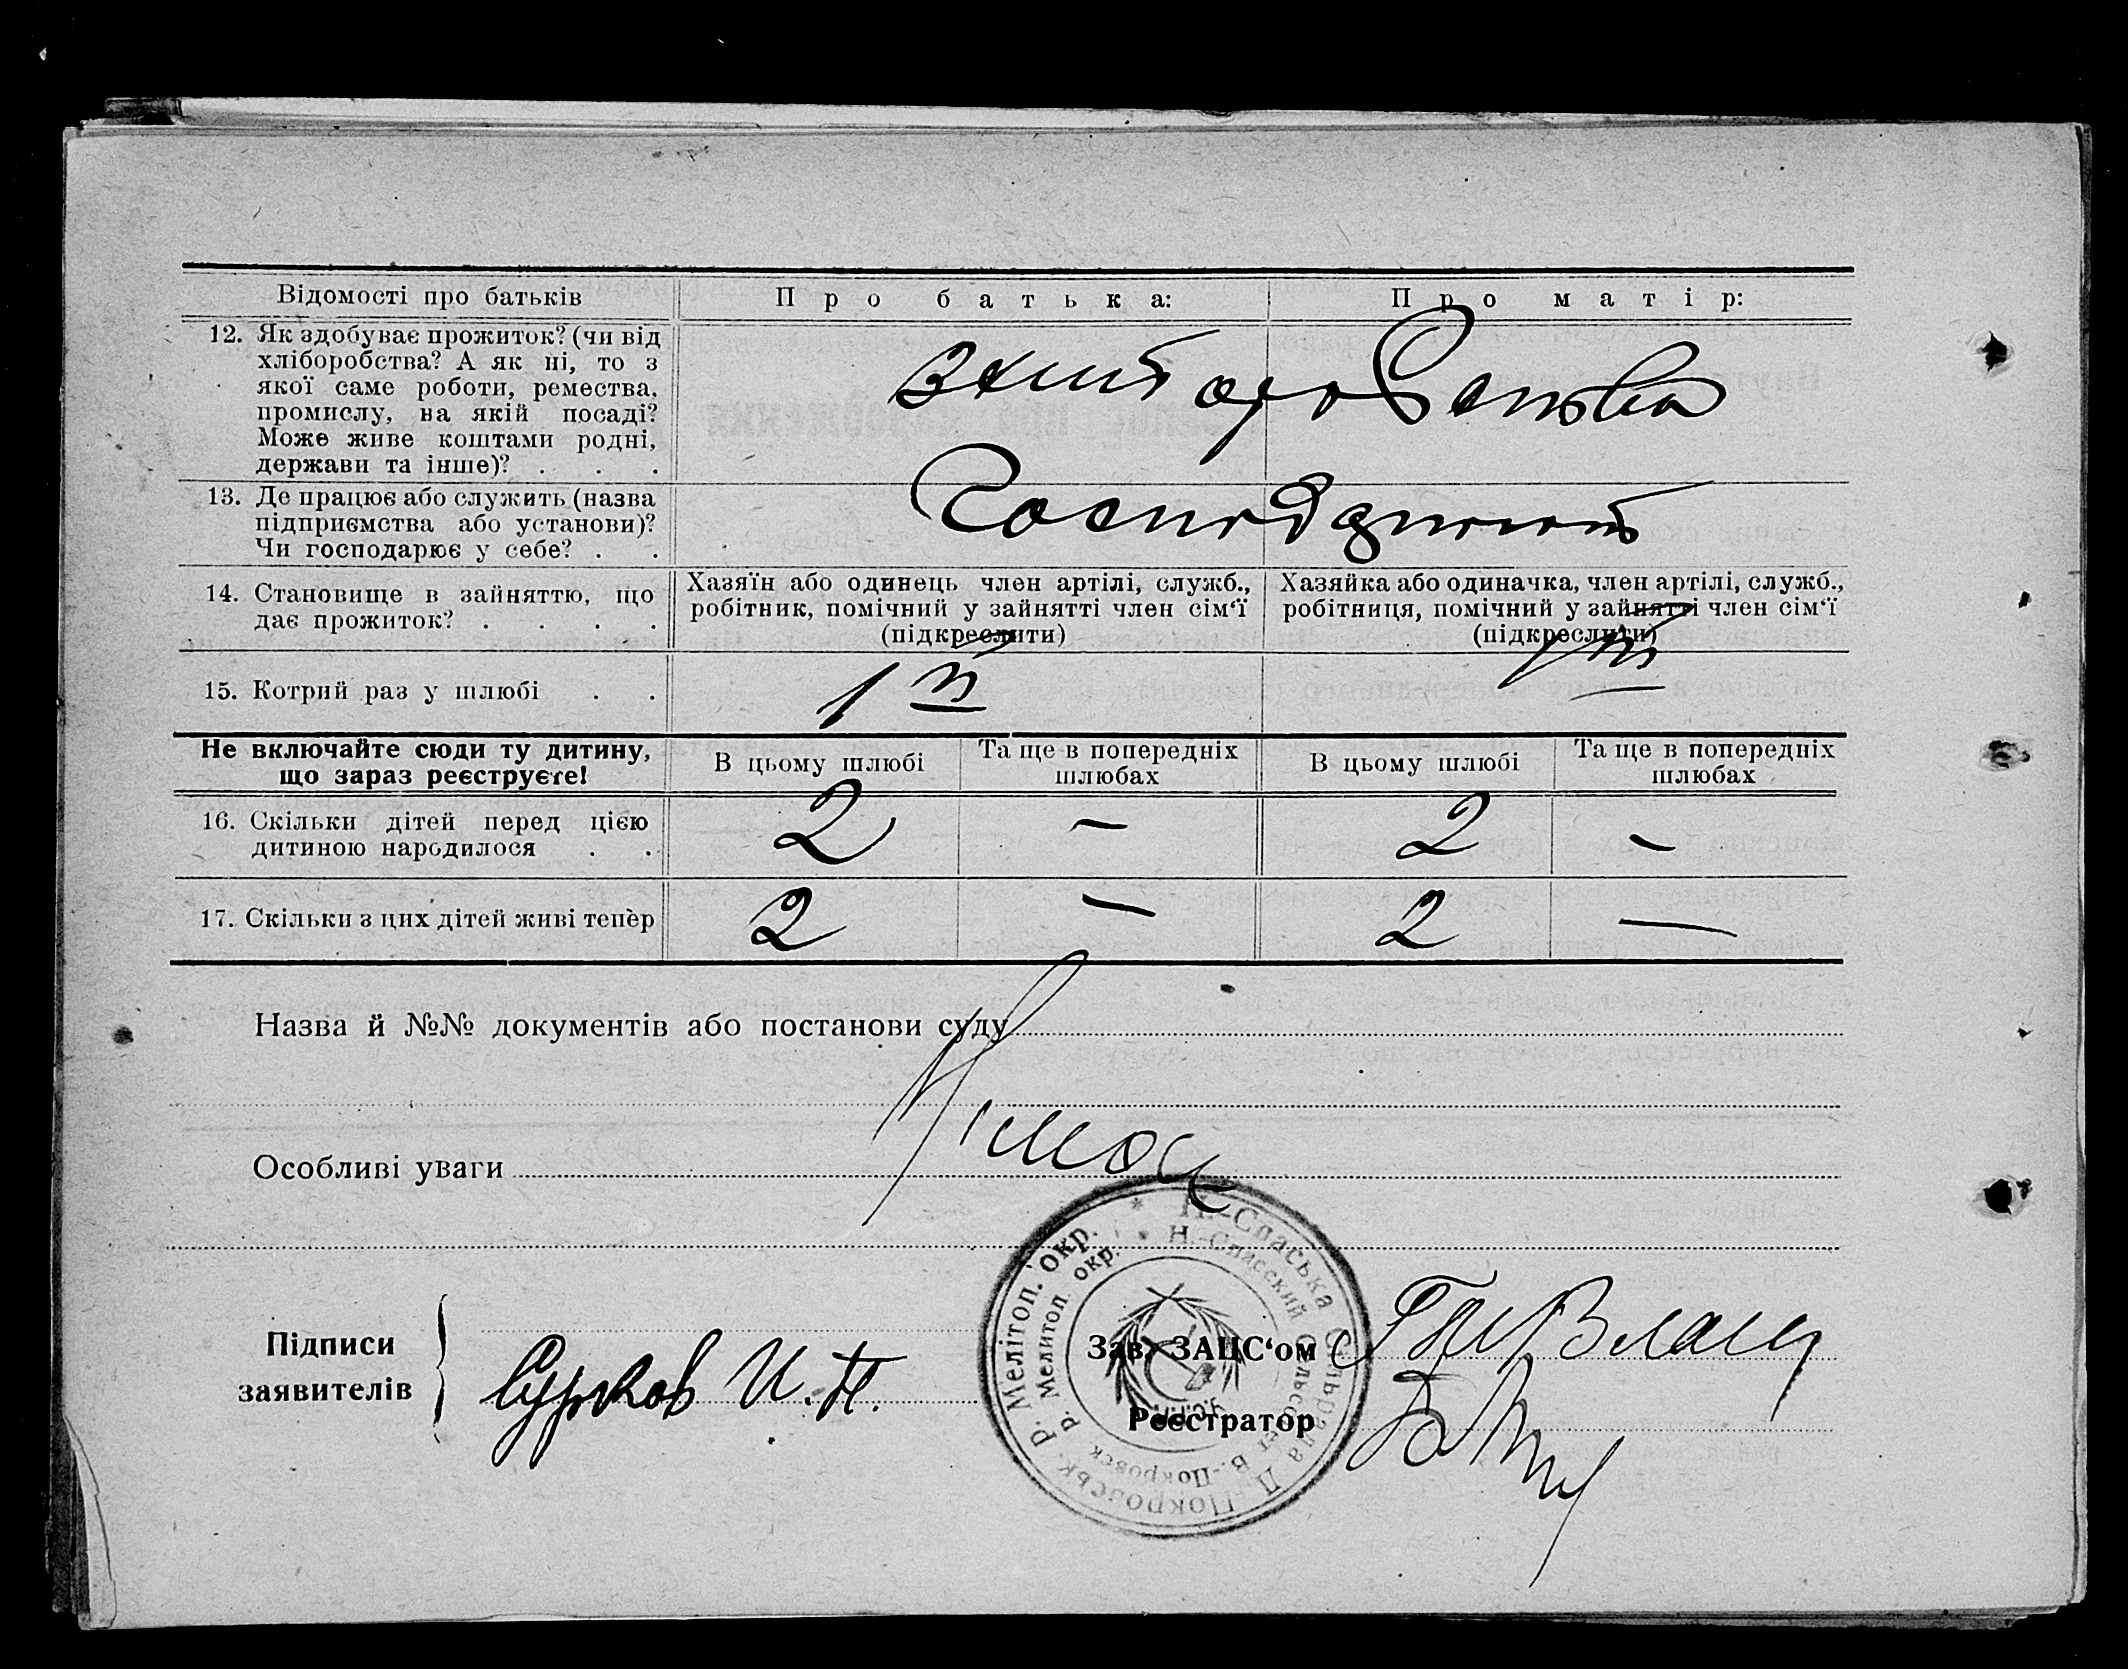 Відомості про батьків
Про батька:
Про матір:
12. Як здобуває прожиток? (чи від
хліборобства? А як ні, то з
якої саме роботи, ремества,
промислу, на якій посаді?
Може живе коштами родні,
держави та інше)? . . .
13. Де працює або служить (назва
підприємства або установи)?
Чи господарює у себе? . .
14. Становище в зайняттю, що
дає прожиток? . . . .
Хазяїн або одинець член артілі, служб.,
робітник, помічний у зайнятті член сім'ї
(підкреслити)
Хазяйка або одиначка, член артілі, служб.,
робітниця, помічний у зайнятті член сім'ї
(підкреслити)
15. Котрий раз у шлюбі . .
1й
Не включайте сюди ту дитину,
що зараз реєструєте!
В цьому шлюбі
Та ще в попередніх
шлюбах
В цьому шлюбі
Та ще в попередніх
шлюбах
16. Скільки дітей перед цією
дитиною народилося . .
2 – 2 –
17. Скільки з цих дітей живі тепер
2 – 2 –
Назва й №№ документів або постанови суду
Особливі уваги
Підписи
заявителів
Сурков И.П.
Зав. ЗАЦС‘ом
Реєстратор
Н.-Спаська Сільрада Д.-Покровськ. Р. Мелітоп. окр.
Н.-Спасский Сельсовет В.-Покровск. р. Мелитоп. окр.